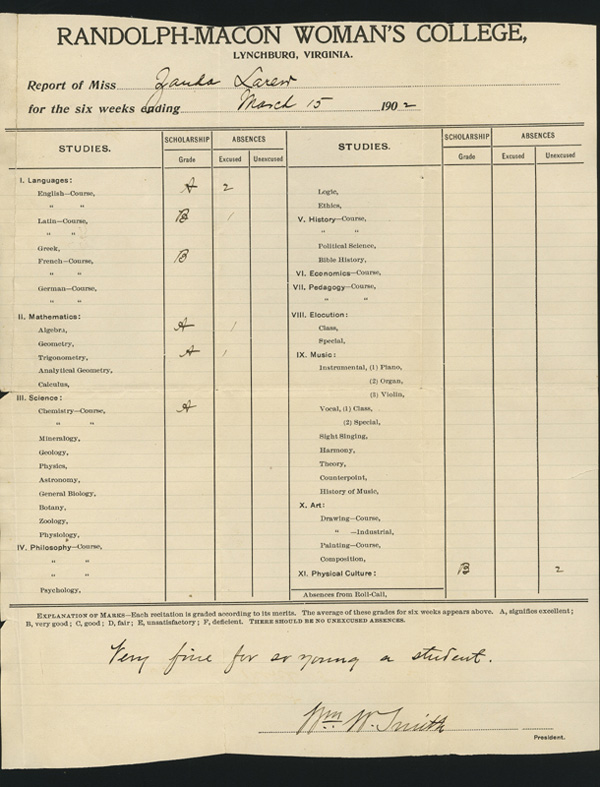 RANDOLPH-MACON WOMAN'S COLLEGE,
LYNCHBURG, VIRGINIA.
Report of Miss Zanda Larew
for the six weeks ending March 15 1902
STUDIES. SCHOLARSHIP ABSENCES
Grade Excused Unexcused
I. Languages:
English—Course, A 2
" "
Latin—Course, B 1
" "
Greek,
French—Course, B
" "
German—Course,
" "
II. Mathematics:
Algebra, A 1
Geometry,
Trigonometry, A 1
Analytical Geometry,
Calculus,
III. Science:
Chemistry—Course, A
" "
Mineralogy,
Geology,
Physics,
Astronomy,
General Biology,
Botany,
Zoology,
Physiology,
IV. Philosophy—Course,
" "
" "
Psychology,
STUDIES. SCHOLARSHIP ABSENCES
Grade Excused Unexcused
Logic,
Ethics,
V. History—Course,
" "
Political Science,
Bible History,
VI. Economics—Course,
VII. Pedagogy—Course,
" "
VIII. Elocution:
Class,
Special,
IX. Music:
Instrumental, (1) Piano,
(2) Organ,
(3) Violin,
Vocal, (1) Class,
(2) Special,
Sight Singing,
Harmony,
Theory,
Counterpoint,
History of Music,
X. Art:
Drawing—Course,
" —Industrial,
Painting—Course,
Composition,
XI. Physical Culture: B 2
Absences from Roll-Call,
EXPLANATION OF MARKS—Each recitation is graded according to its merits. The average of these grades for six weeks appears above. A, signifies excellent;
B, very good; C, good; D, fair; E, unsatisfactory; F, deficient. THERE SHOULD BE NO UNEXCUSED ABSENCES.
Very fine for so young a student.
Wm. W. Smith
President.